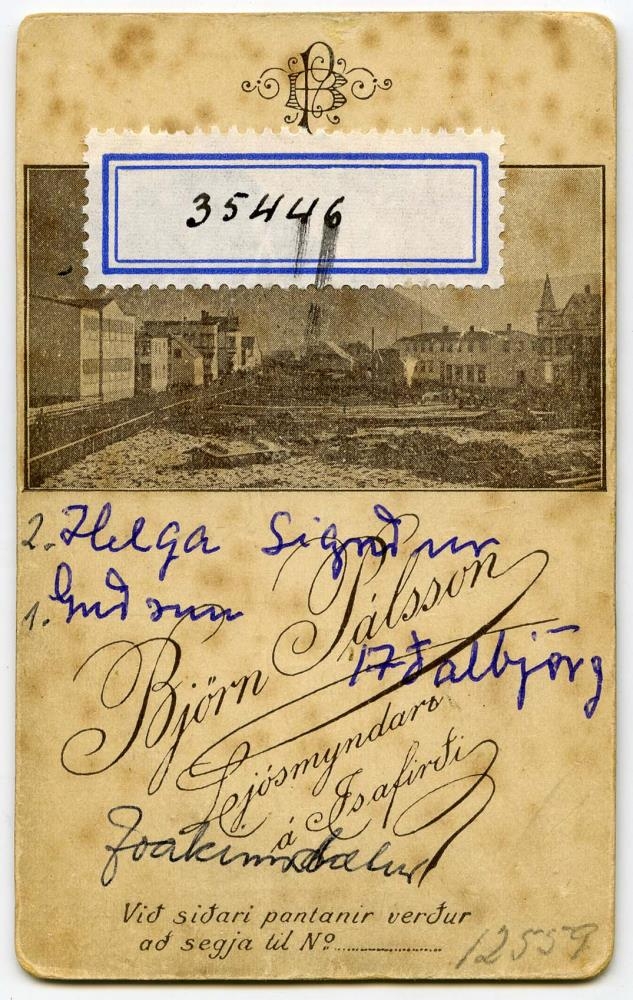 BP
35446
2. Helga Sigríður
1. Guðrún
Björn Pálsson
Aðalbjörg
Ljósmyndari
á Ísafirði
Joakimsdætur
Við síðari pantanir verður
að segja til Nº
12559